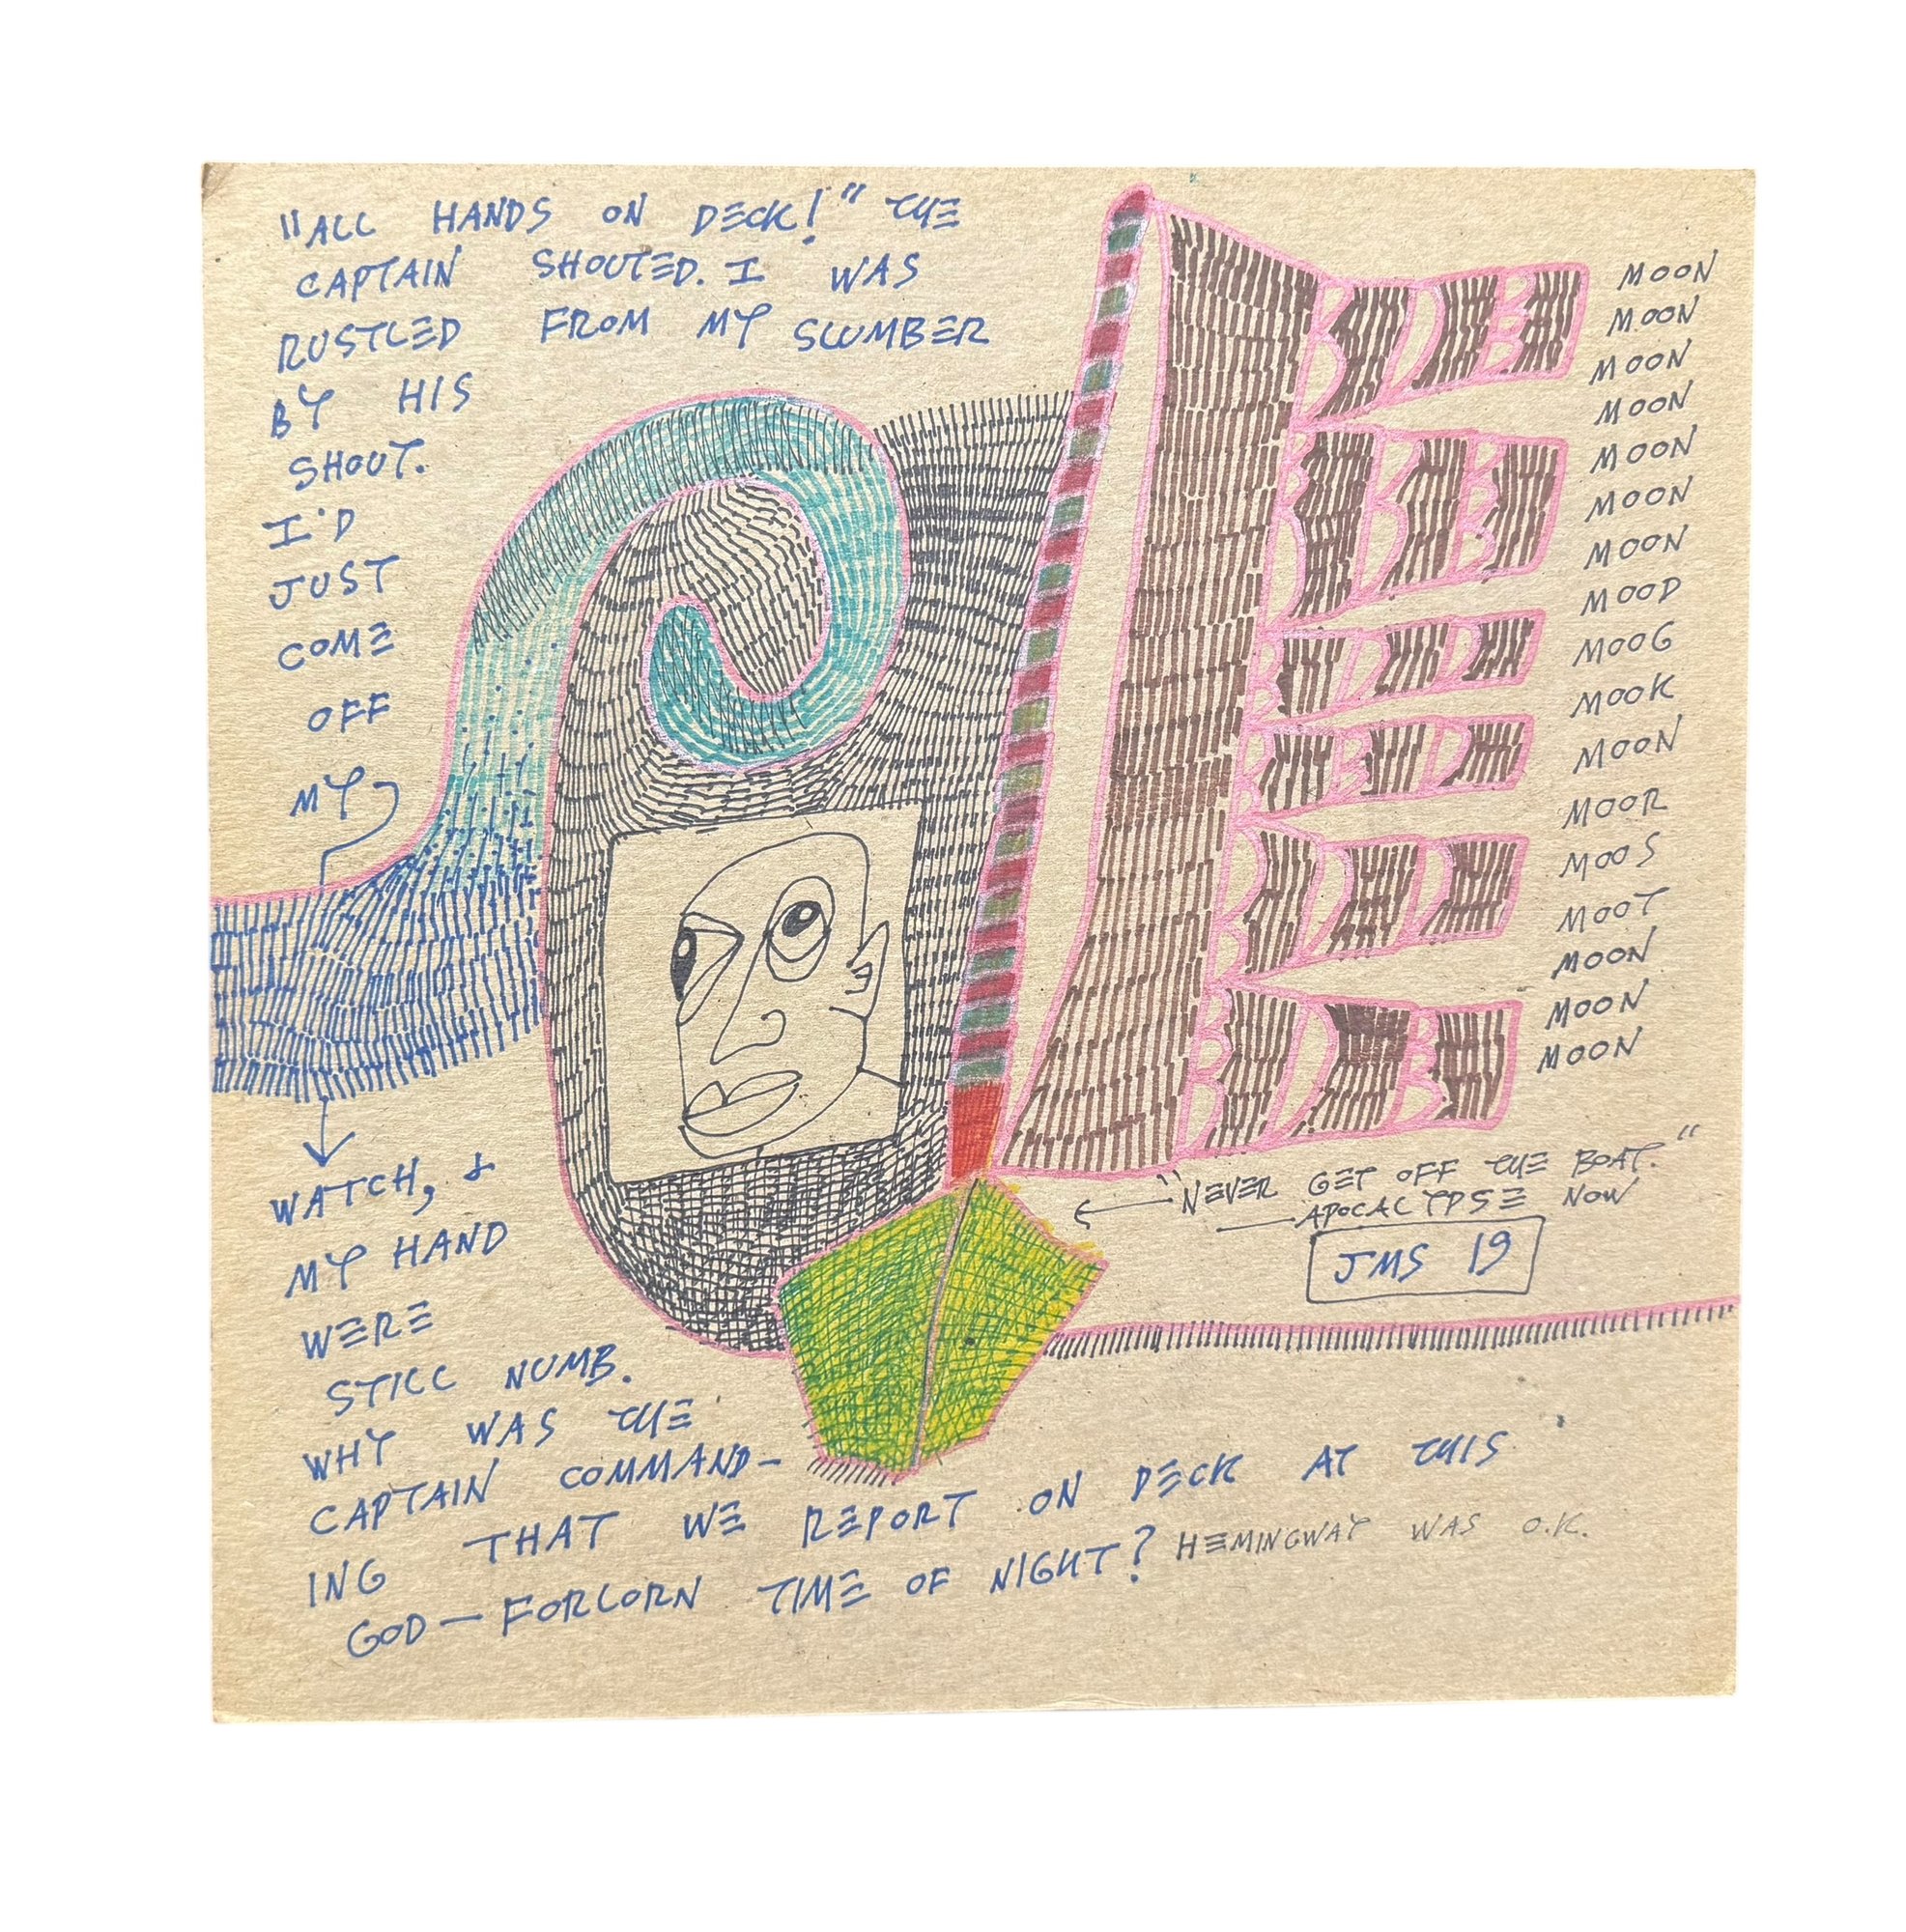 "ALL HANDS ON DECK!" THE
CAPTAIN SHOUTED. I WAS
RUSTLED FROM MY SLUMBER
BY HIS
SHOUT.
I'D
JUST
COME
OFF
MY
WATCH, &
MY HAND
WERE
STILL NUMB.
WHY WAS THE
CAPTAIN COMMAND-
ING THAT WE REPORT ON DECK AT THIS
GOD-FORLORN TIME OF NIGHT? HEMINGWAY WAS O.K.
MOON
MOON
MOON
MOON
MOON
MOON
MOON
MOOD
MOOG
MOOK
MOON
MOOR
MOOS
MOOT
MOON
MOON
MOON
"NEVER GET OFF THE BOAT."
—APOCALYPSE NOW
JMS 19